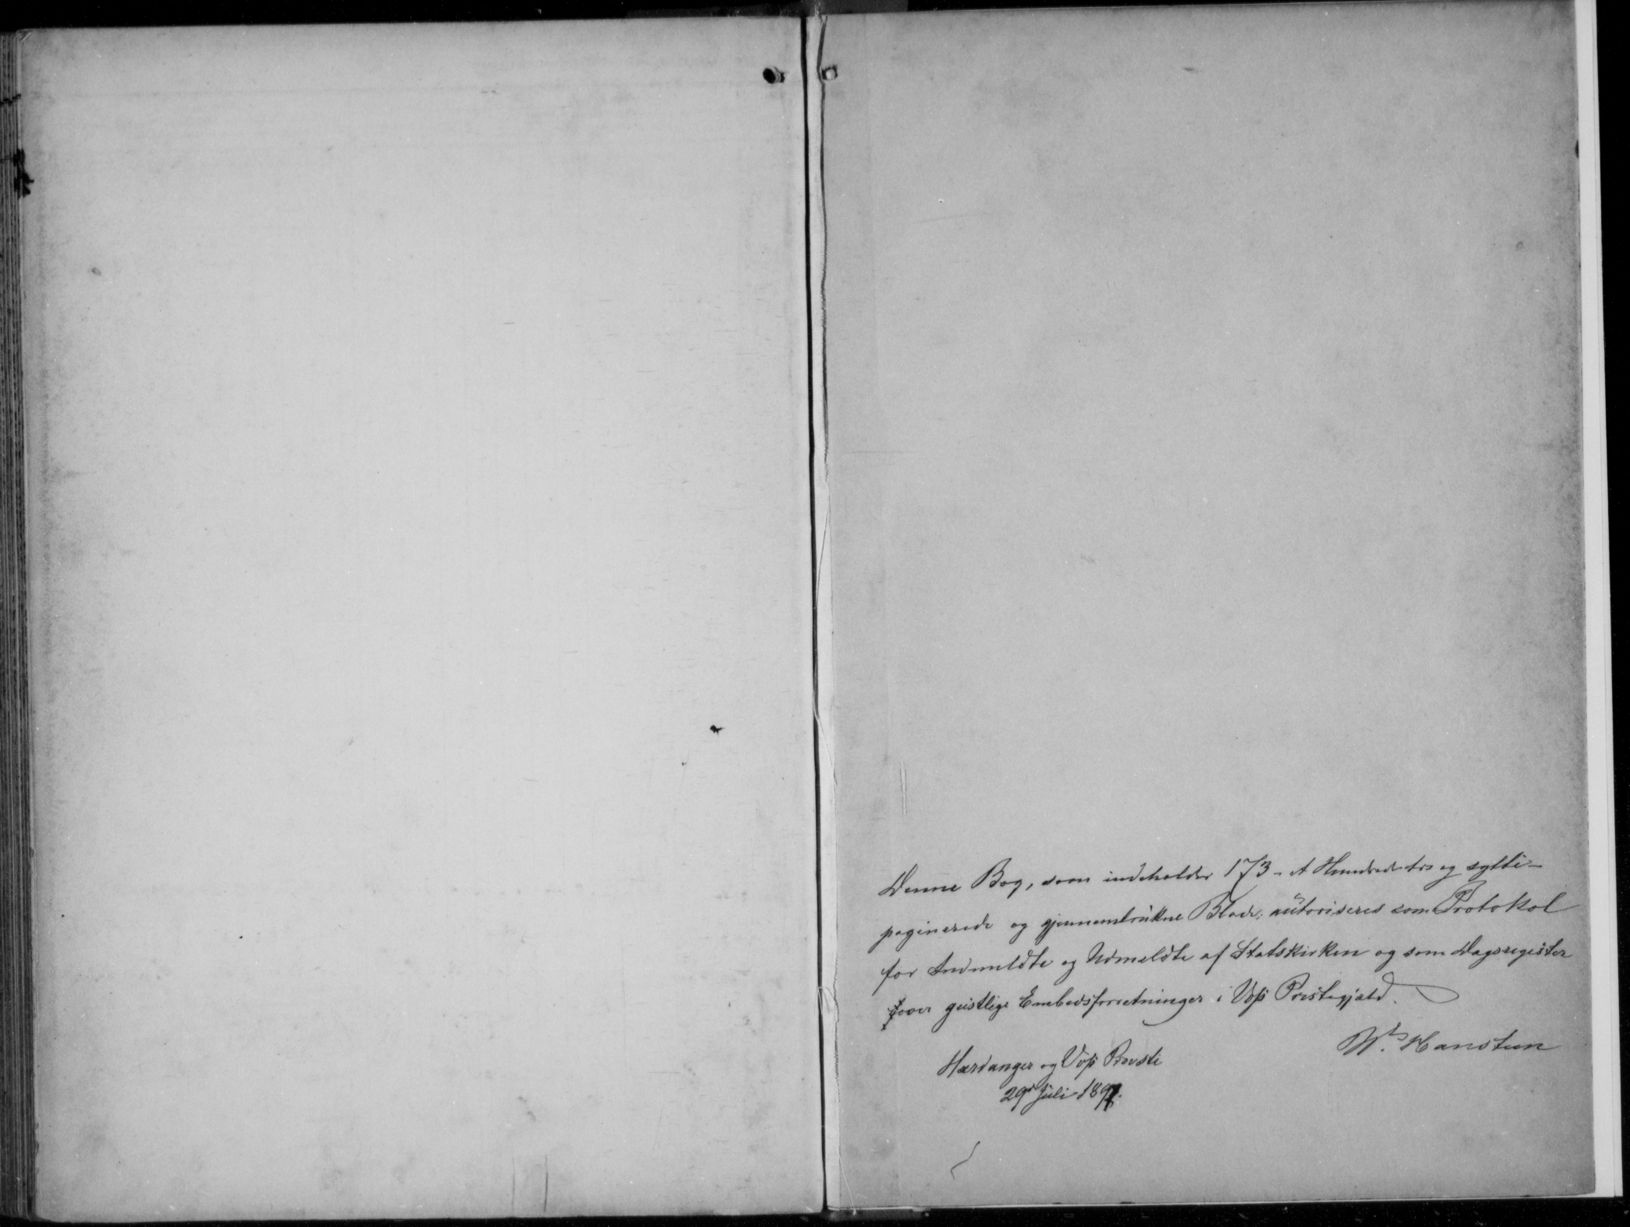 Denne Bog, som indeholder 173 - et Hundrede tre og sytti -
paginerede og gjennemtrukne Blade, autoriseres som Protokol
for Indmeldte og Udmeldte af Statskirken og som Dagsregister
over geistlige Embedsforretninger i Voss Prestegjæld.
Hardanger og Voss Provsti
29de Juli 1891.
W. Hansteen